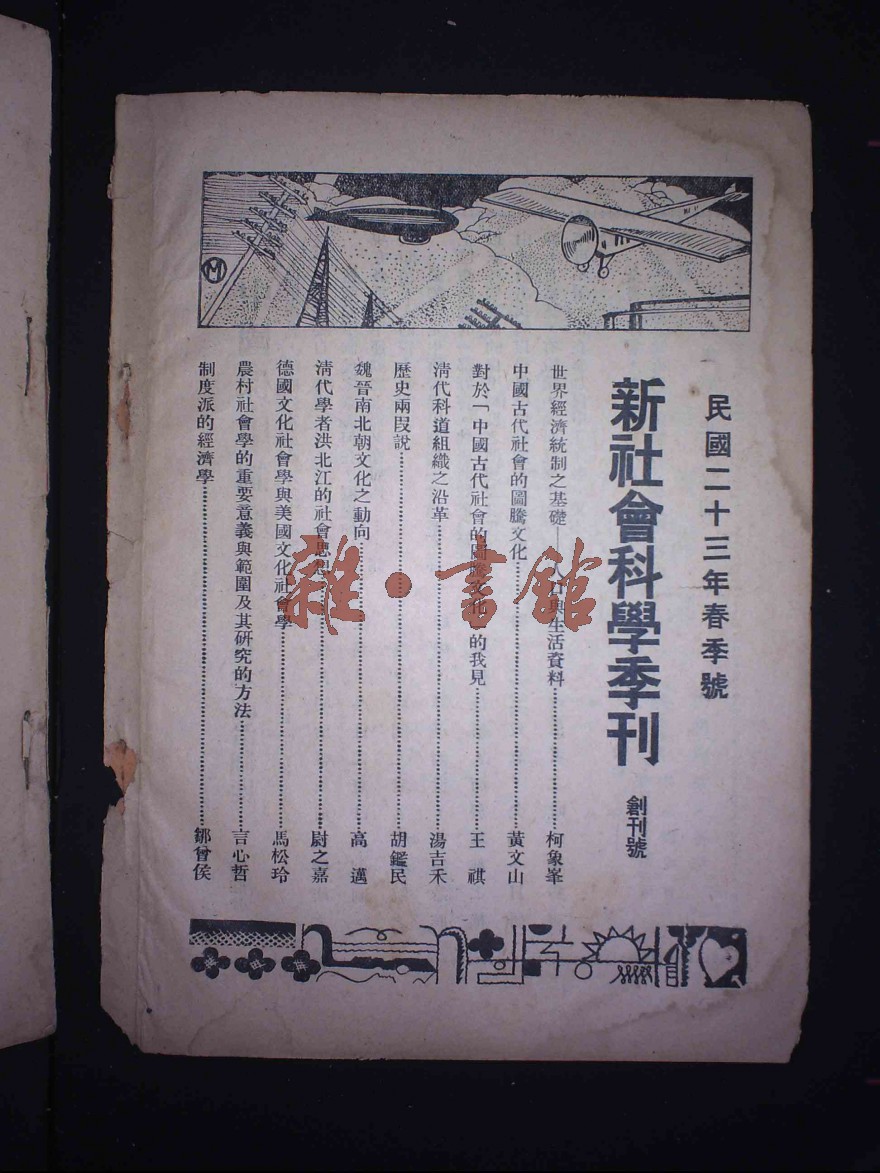 民國二十三年春季號
新社會科學季刊 創刊號
世界經濟統制之基礎——人口與生活資料…………柯象峯
中國古代社會的圖騰文化…………黃文山
對於「中國古代社會的圖騰文化」的我見…………王祺
清代科道組織之沿革…………湯吉禾
歷史兩段說…………胡鑑民
魏晉南北朝文化之動向…………高邁
清代學者洪北江的社會思想…………尉之嘉
德國文化社會學與美國文化社會學…………馬松玲
農村社會學的重要意義與範圍及其研究的方法…………言心哲
制度派的經濟學…………鄒曾侯
M
雜·書館